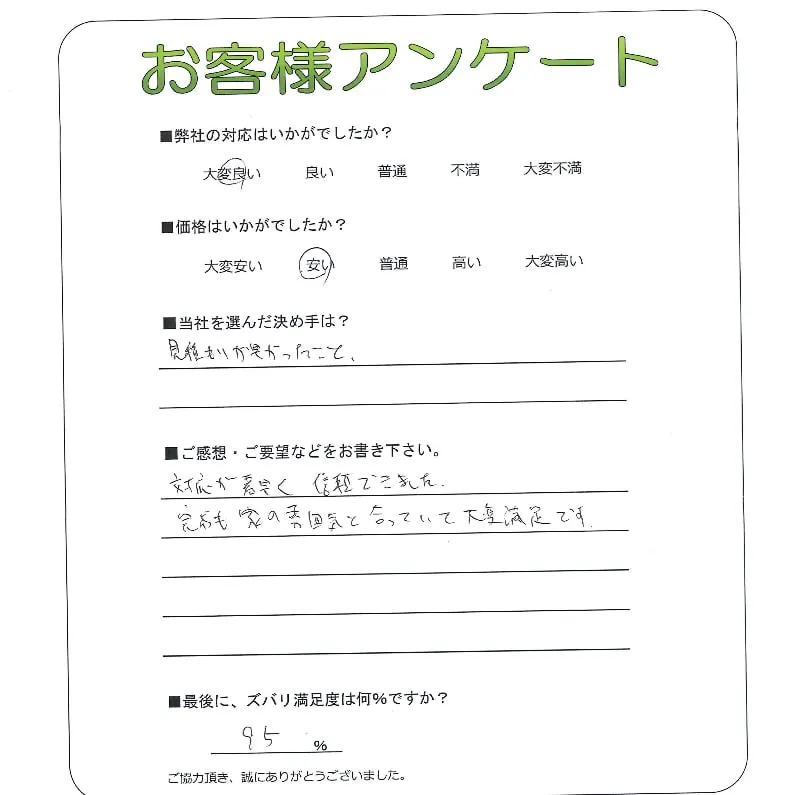 お客様アンケート
■弊社の対応はいかがでしたか？
大変良い 良い 普通 不満 大変不満
■価格はいかがでしたか？
大変安い 安い 普通 高い 大変高い
■当社を選んだ決め手は？
見積もりが安かったこと、
■ご感想・ご要望などをお書き下さい。
対応が素早く 信頼できました.
も 家の雰囲気と合っていて大変満足です.
■最後に、ズバリ満足度は何％ですか？
95 ％
ご協力頂き、誠にありがとうございました。